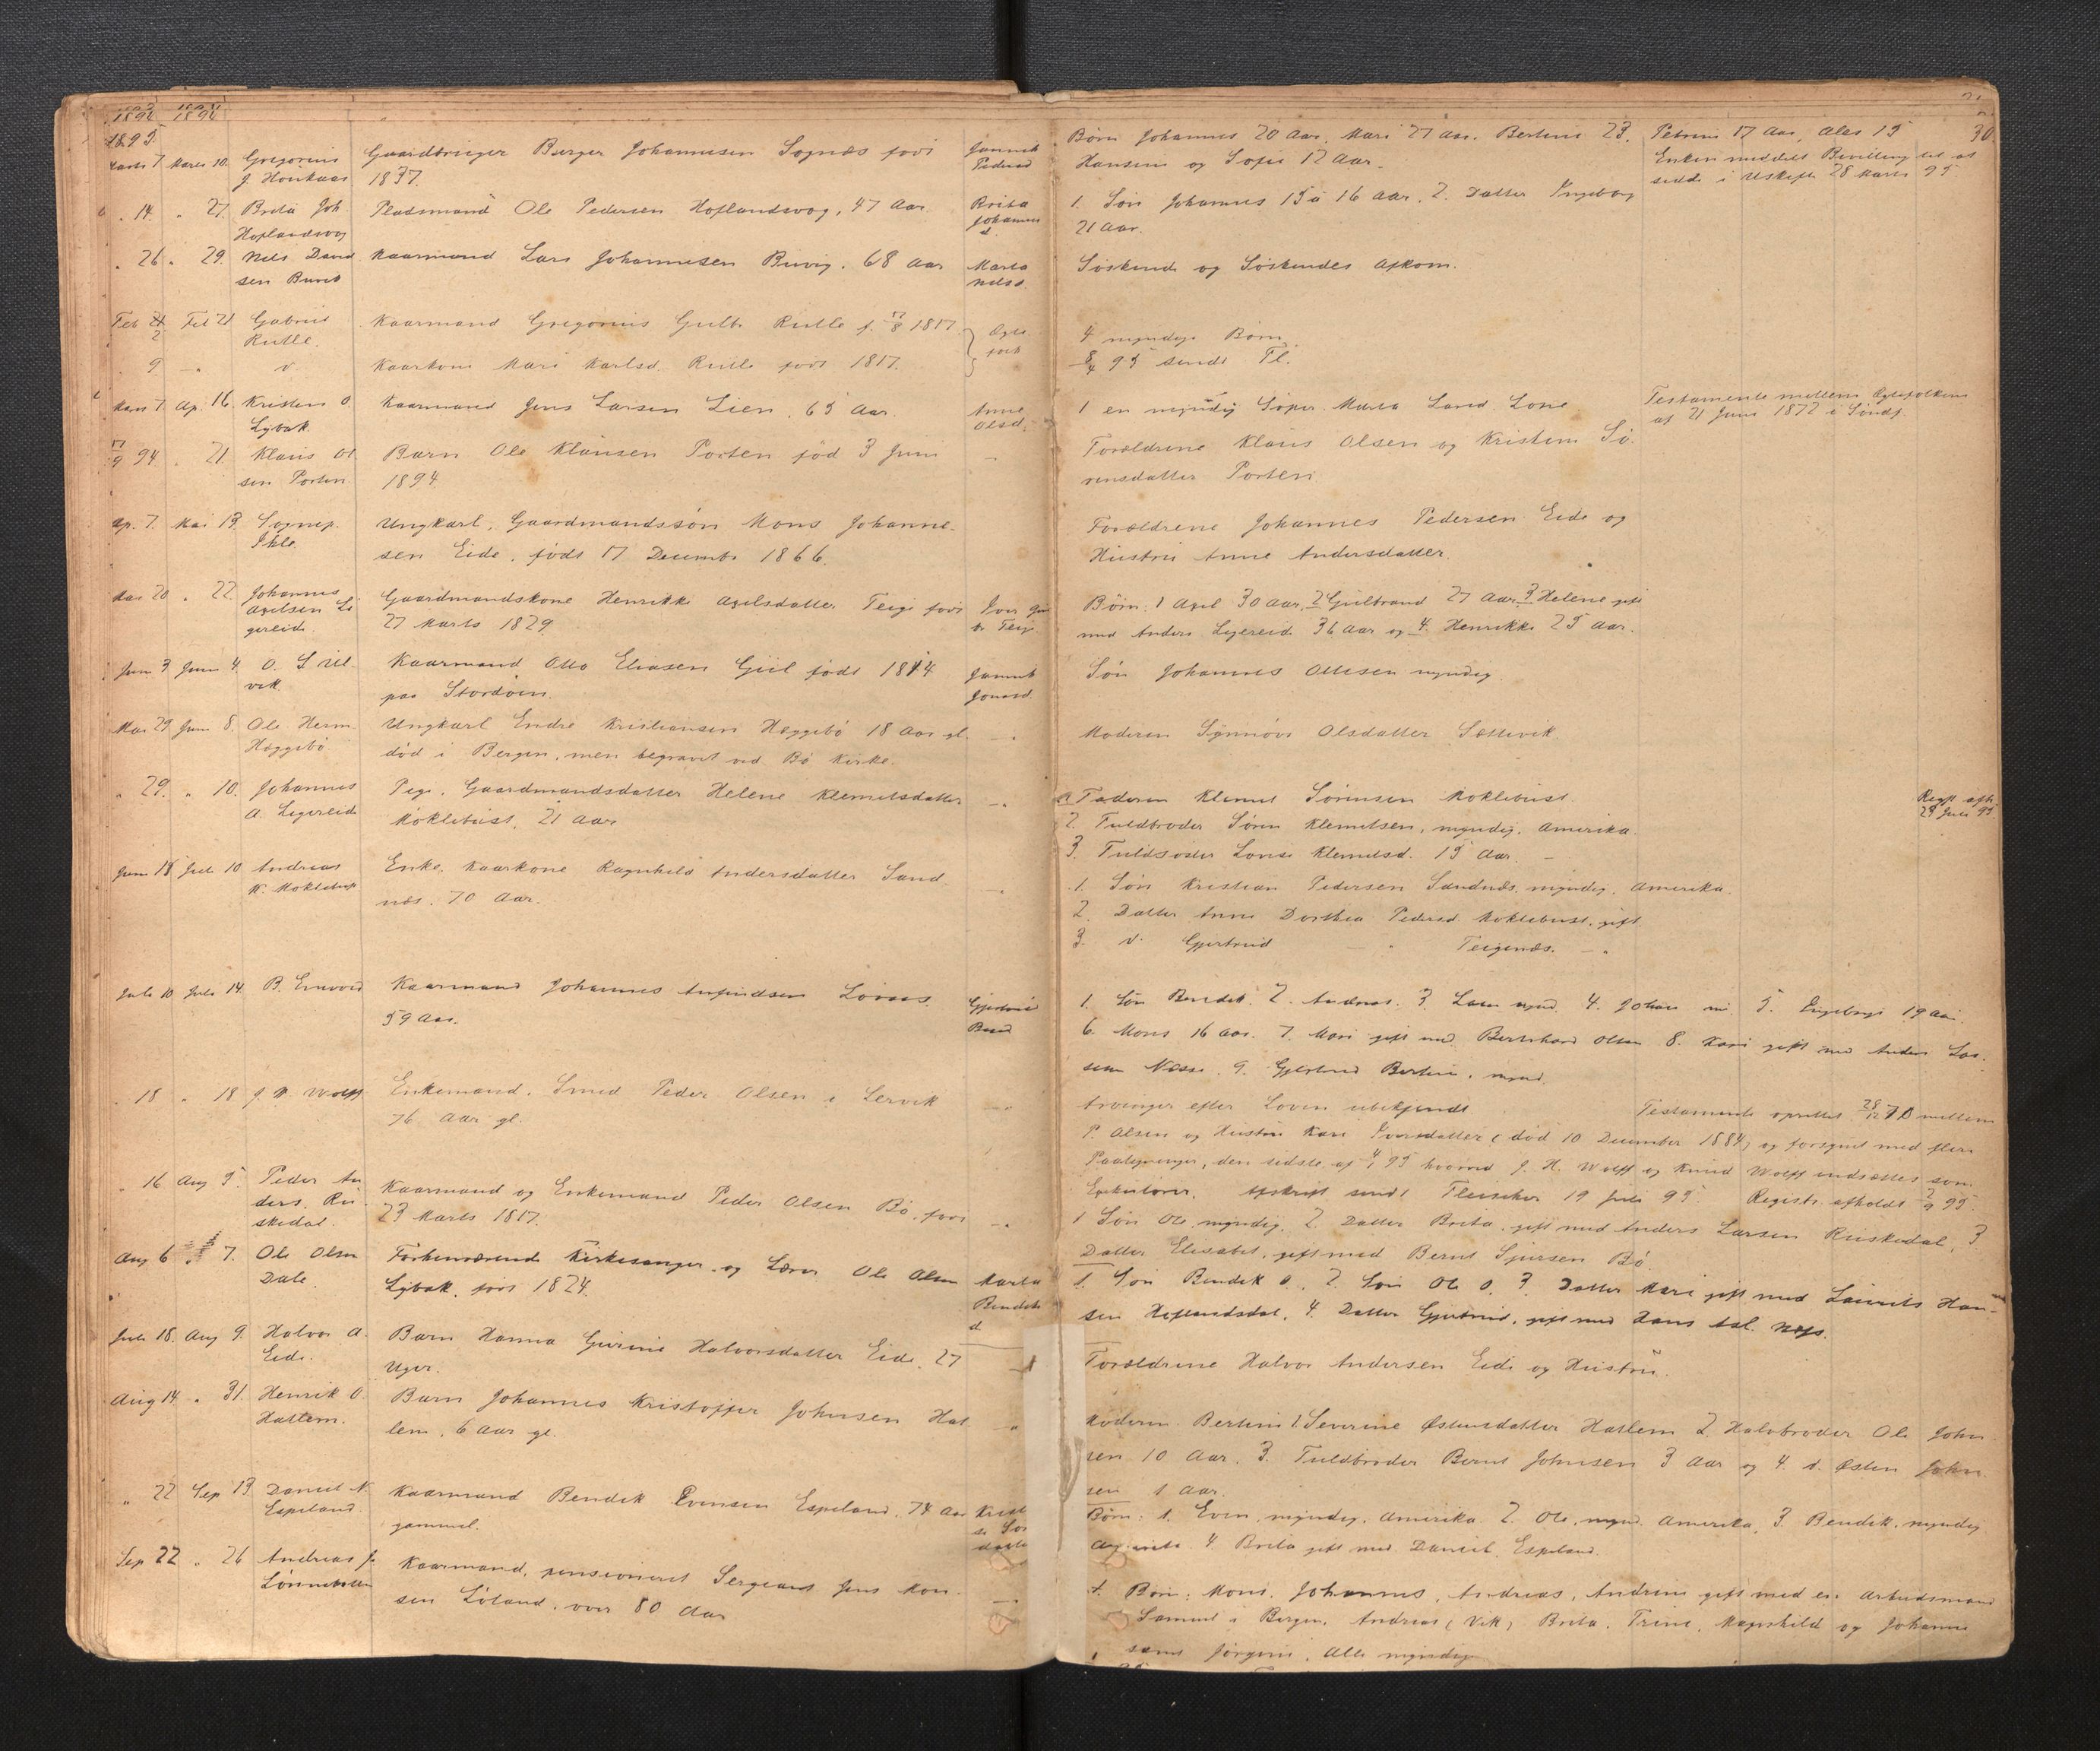 1895.
Marts 7 Marts 10. Gregorius J. Hovkaas
Gaardbruger Berger Johannesen Sognæs født
1837.
Jannik Pedersd
Børn Johannes 20 Aar, Mari 27 Aar. Bertine 23. Petrine 17 Aar, Ales 15
Hansine og Sofie 12 Aar.
Enken meddelt Bevilling til at
sidde i Uskifte 28 Marts 95
30.
" 14. " 27. Brita Joh Hoflandsvog
Pladsmand Ole Pedersen Hoflandsvog, 47 Aar.
Brita Johannesd.
1. Søn Johannes 15 à 16 Aar. 2. Datter Ingeborg
21 Aar.
" 26 " 29. Nels Davidsen Buvik
Kaarmand Lars Johannesen Buvig. 68 Aar
Marta Nelsd.
Søskende og Søskendes Afkom.
Feb 2 Feb 21 Gabriel Rutle.
Kaarmand Gregorius Gulb. Rutle f. 17/8 1817.
Ægtefolk
4 myndige Børn
9 — " d
Kaarkone Mari Karlsd. Rutle født 1817.
8/4 95 sendt Fl.
Mars 7. Ap. 16. Kristen O. Lybak
Kaarmand Jens Larsen Lien, 65 Aar.
Anne Olsd.
1 en myndig Søster Marta Larsd Lone
Testamente mellem Ægtefolkene
af 21 Juni 1872 i Søndf.
17/9 94 " 21. Klaus Olsen Porten
Barn Ole Klausen Porten født 3 Juni
1894
Forældrene Klaus Olsen og Kristine Sø-
rensdatter Porten
Ap. 7. Mai 13. Sognep. Ihle
Ungkarl, Gaardmandssøn Mons Johanne-
sen Eide, født 17 Decembr 1866.
Forældrene Johannes Pedersen Eide og
Hustru Anne Andersdatter.
Mai 20 " 22. Johannes Axelsen Ligereid.
Gaardmandskone Henrikke Axelsdatter Teige født
27 Marts 1829
Børn: 1 Axel 30 Aar, 2 Gulbrand 27 Aar 3 Helene gift
med Anders Ligereid 36 Aar og 4. Henrikke 25 Aar.
Juni 3 Juni 4. O. S. Ulvik
Kaarmand Otto Eliasen Gul født 1814
paa Stordøen.
Jannik Jonasd.
Søn Johannes Ottesen myndig
Mai 29 Juni 8. Ole Herm. Hæggebø
Ungkarl Endre Kristiansen Hæggebø 18 Aar gl.
død i Bergen, men begravet ved Bø Kirke.
Moderen Synnøve Olsdatter Sættevik.
" 29. " 10. Johannes A. Ligereid
Pige, Gaardmandsdatter Helene Klemetsdatter
Moklebust, 21 Aar
Faderen Klemet Sørensen Moklebust
2. Fuldbroder Søren Klemetsen, myndig. Amerika.
3. Fuldsøster Lovise Klemetsd. 15 Aar.
Regst. afh.
29 Juli 95
Juni 18 Juli 10 Andreas K. Moklebust
Enke, Kaarkone Ragnhild Andersdatter Sand-
næs. 70 Aar.
1. Søn Kristian Pedersen Sandnæs, myndig, Amerika.
2. Datter Anne Dorthea Pedersd. Moklebust, gift.
3. d. Gjertrud — " Teigenæs. — "
Juli 10 Juli 14. B. Envord
Kaarmand Johannes Anfindsen Løvaas.
59 Aar.
1. Søn Bendik. 2. Andreas. 3. Lasse mynd. 4. Johan 5. Engebregt 19 Aar.
6. Mons 16 Aar. 7. Mari gift med Berthard Olsen 8. Kari gift med Anders Las-
sen Næsse. 9. Gjertrud Bertine. mynd.
" 18 " 18 J. H. Wolff
Enkemand, Smed Peder Olsen i Lervik
76 Aar gl.
Arvinger efter Loven ubekjendt
Testamente oprettet 28/12 70 mellem
P. Olsen og Hustru Kari Iversdatter (død 10 December 1884) og forsynet med flere
Paategninger, den sidste af 4/1 95 hvorved J. H. Wolff og Knud Wolff indsættes som
Exekutorer. Afskrift sendt Fleischer 19 Juli 95. Registr. afholdt 2/9 95.
" 16 Aug 5. Peder Anders. Ruskedal.
Kaarmand og Enkemand Peder Olsen Bø, født
23 Marts 1817.
1 Søn Ole myndig. 2. Datter Brita, gift med Anders Larsen Ruskedal, 3
Datter Elisabet, gift med Bernt Sjursen Bø.
Aug 6 " 7. Ole Olsen Dale
Forhenværende Kirkesanger og Lærer Ole Olsen
Lybak, født 1824.
Marta Bendiksd
1. Søn Bendik O. 2. Søn Ole O. 3. Datter Mari gift med Laurits Han-
sen Hoflandsdal, 4. Datter Gjertrud, gift med Hans
Juli 18. Aug 9. Halvor A. Eide.
Barn Hanna Gurine Halvorsdatter Eide, 27
Uger.
Forældrene Halvor Andersen Eide og Hustru.
Aug 14 " 31. Henrik O. Hatlem.
Barn Johannes Kristoffer Johnsen Hat-
lem, 6 Aar gl.
Moderen Bertine 1. Severine Østensdatter Hatlem 2. Halvbroder Ole John-
sen 10 Aar, 3. Fuldbroder Bernt Johnsen 3 Aar og 4. d. Østen John-
sen 1 Aar.
" 22 Sep 13 Daniel N. Espeland.
Kaarmand Bendik Evensen Espeland, 74 Aar
gammel.
Børn: 1. Even, myndig, Amerika 2. Ole, mynd. Amerika, 3. Bendik, myndig
4. Brita gift med Daniel Espeland.
Sep 22 " 26 Andreas J.
Kaarmand, pensioneret Sergeant Jens Mon-
sen Løland, over 80 Aar
Børn: Mons, Johannes, Andreas, Andrine gift med en Arbeidsmand
Samuel i Bergen, Andreas (Vik) Brita, Trine, Magnhild og Johanne
samt Jørgine, Alle myndige